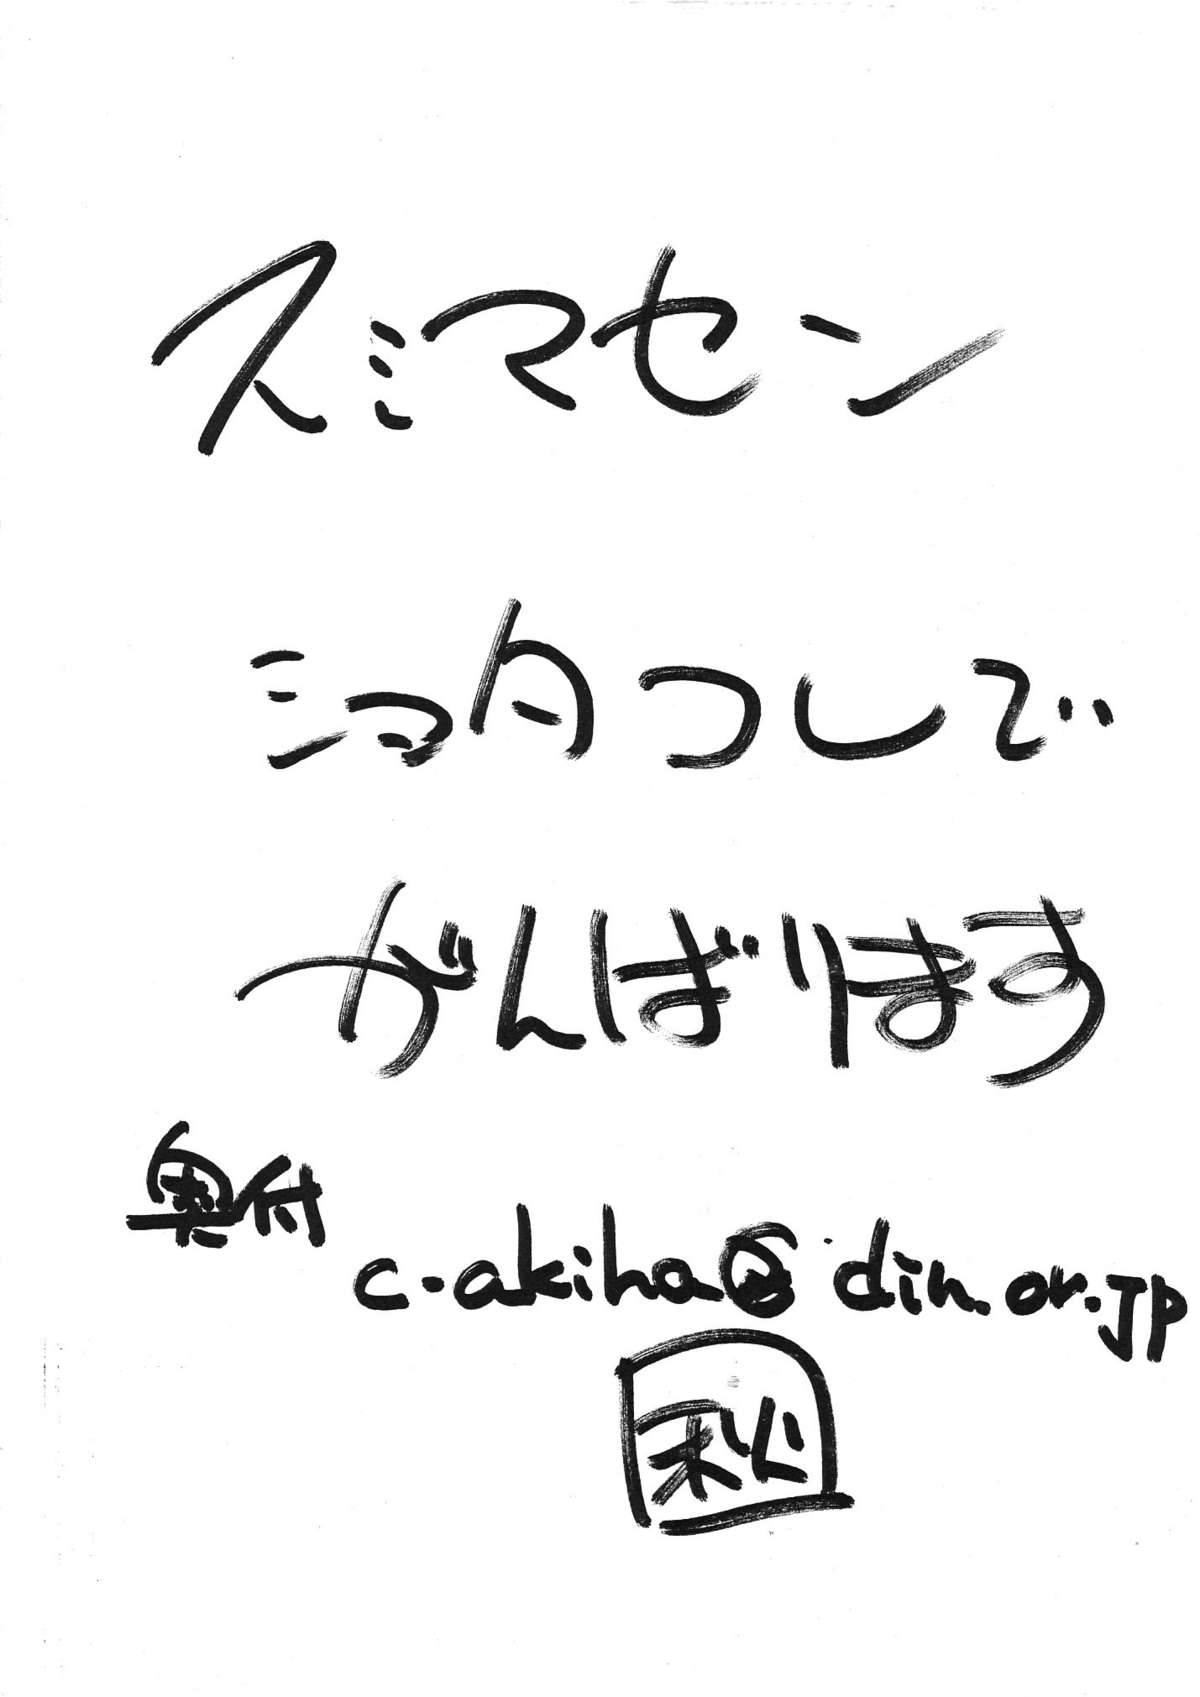 スミマセン
ショタコレで
がんばります
奥付
c-akiha@din.or.jp
秘